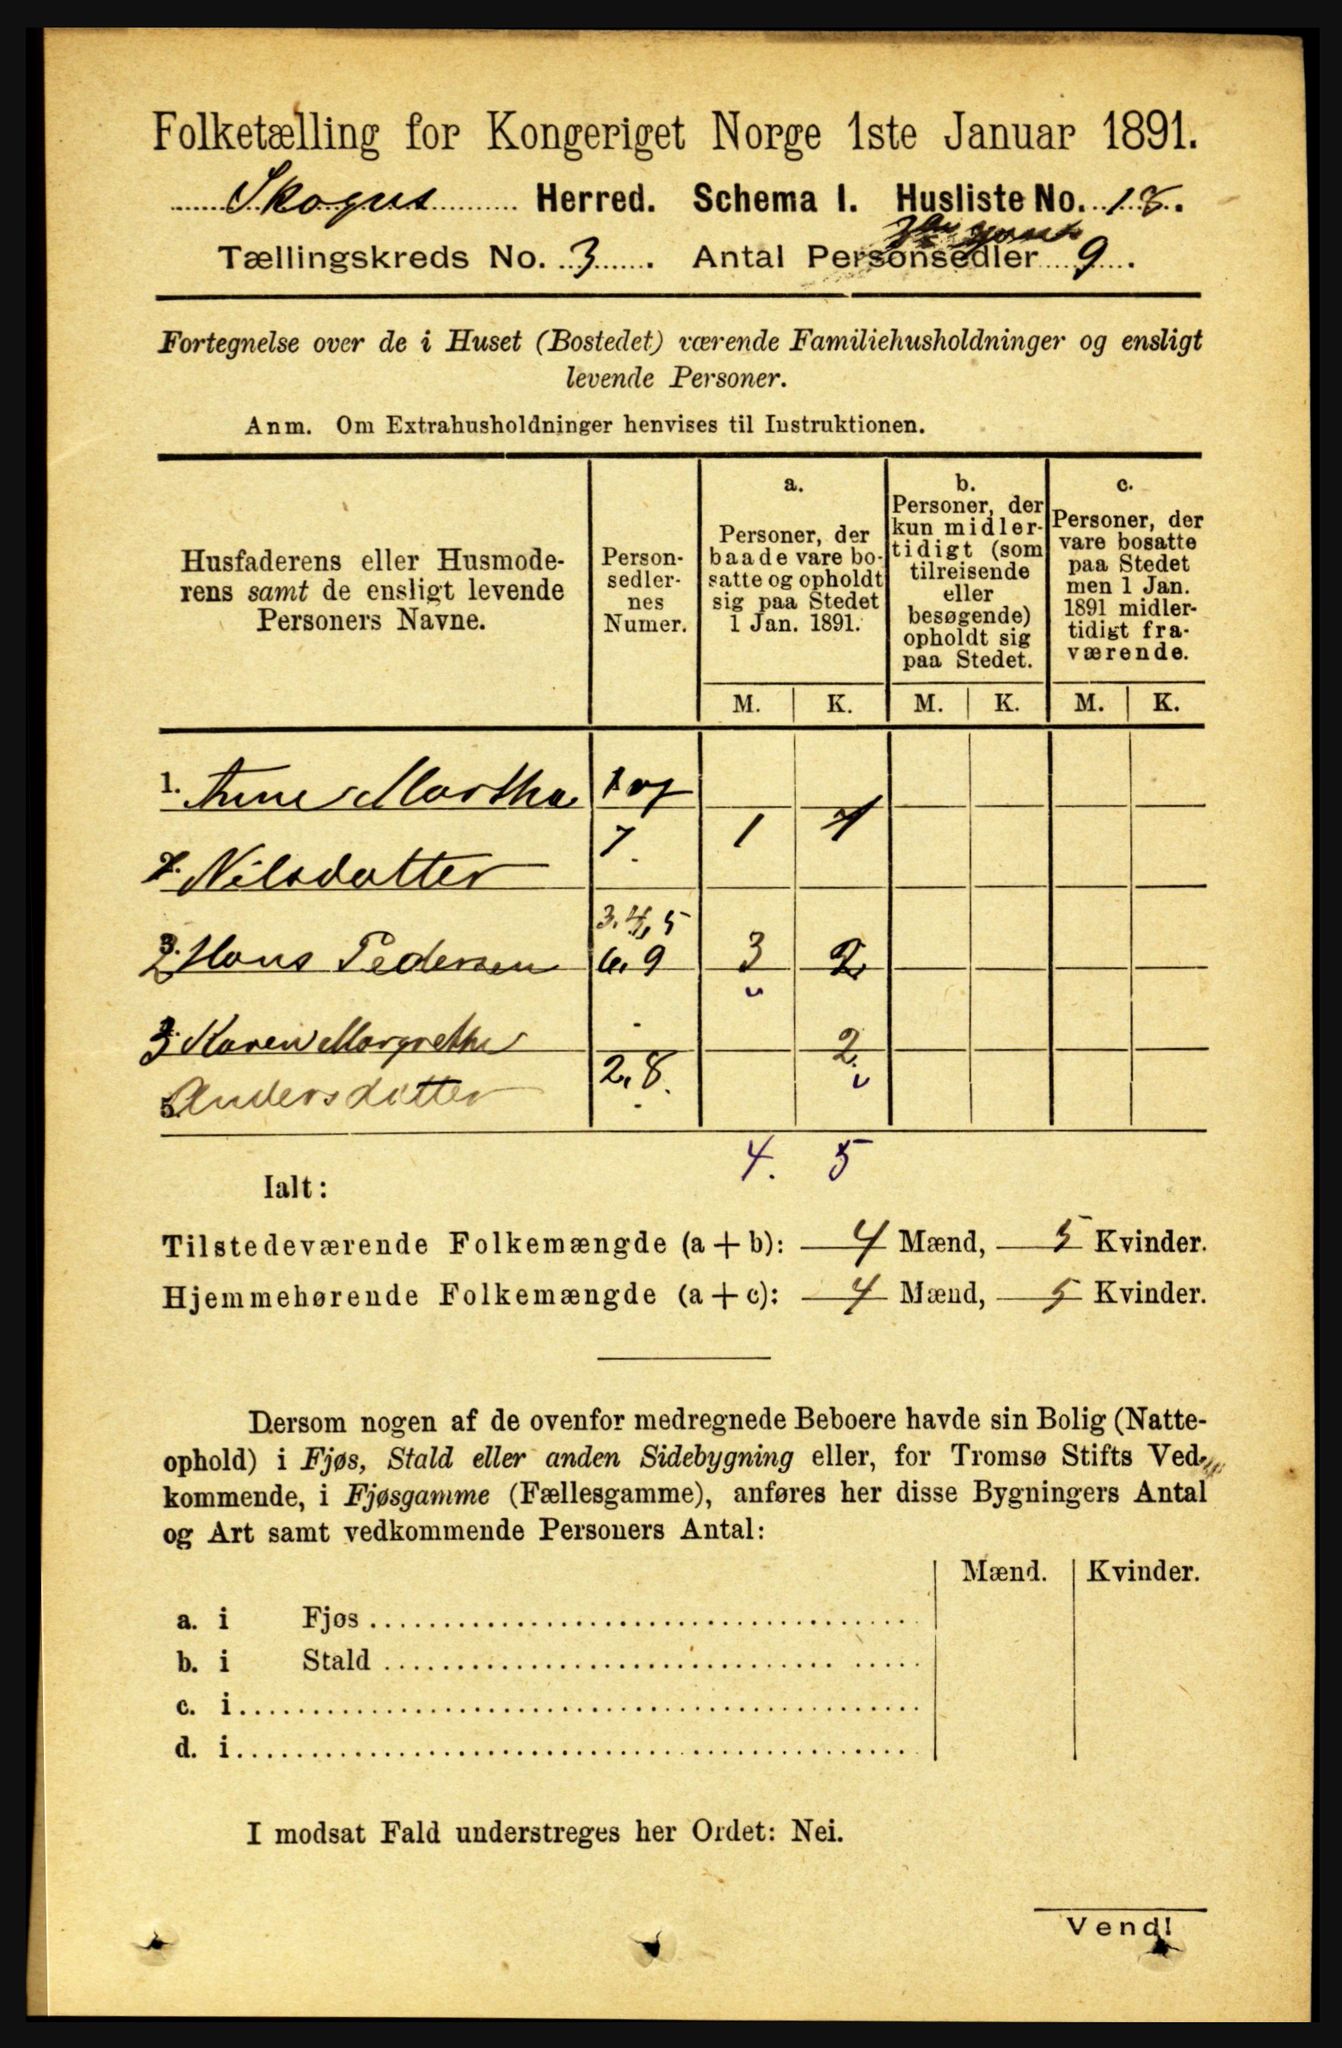 Folketælling for Kongeriget Norge 1ste Januar 1891.
Skogns Herred. Schema I. Husliste No. 18.
Tællingskreds No. 3. Antal Personsedler 9.
Fortegnelse over de i Huset (Bostedet) værende Familiehusholdninger og ensligt
levende Personer.
Anm. Om Extrahusholdninger henvises til Instruktionen.
Husfaderens eller Husmode-
rens samt de ensligt levende
Personers Navne.
Person-
sedler-
nes
Numer.
a.
Personer, der
baade vare bo-
satte og opholdt
sig paa Stedet
1 Jan. 1891.
b.
Personer, der
kun midler-
tidigt (som
tilreisende
eller
besøgende)
opholdt sig
paa Stedet.
c.
Personer, der
vare bosatte
paa Stedet
men 1 Jan.
1891 midler-
tidigt fra-
værende.
M. K. M. K. M. K.
1. Anne Martha 1 og
Nilsdatter 7. 1 1
3. 4, 5
2 Hans Pedersen 6, 9 3 2
3 Karen Margrethe 2
Andersdatter 2, 8.
4. 5
Ialt:
Tilstedeværende Folkemængde (a + b): 4 Mænd, 5 Kvinder.
Hjemmehørende Folkemængde (a + c): 4 Mænd, 5 Kvinder.
Dersom nogen af de ovenfor medregnede Beboere havde sin Bolig (Natte-
ophold) i Fjøs, Stald eller anden Sidebygning eller, for Tromsø Stifts Ved-
kommende, i Fjøsgamme (Fællesgamme), anføres her disse Bygningers Antal
og Art samt vedkommende Personers Antal:
Mænd. Kvinder.
a. i Fjøs
b. i Stald
c. i
d. i
I modsat Fald understreges her Ordet: Nei.
Vend!